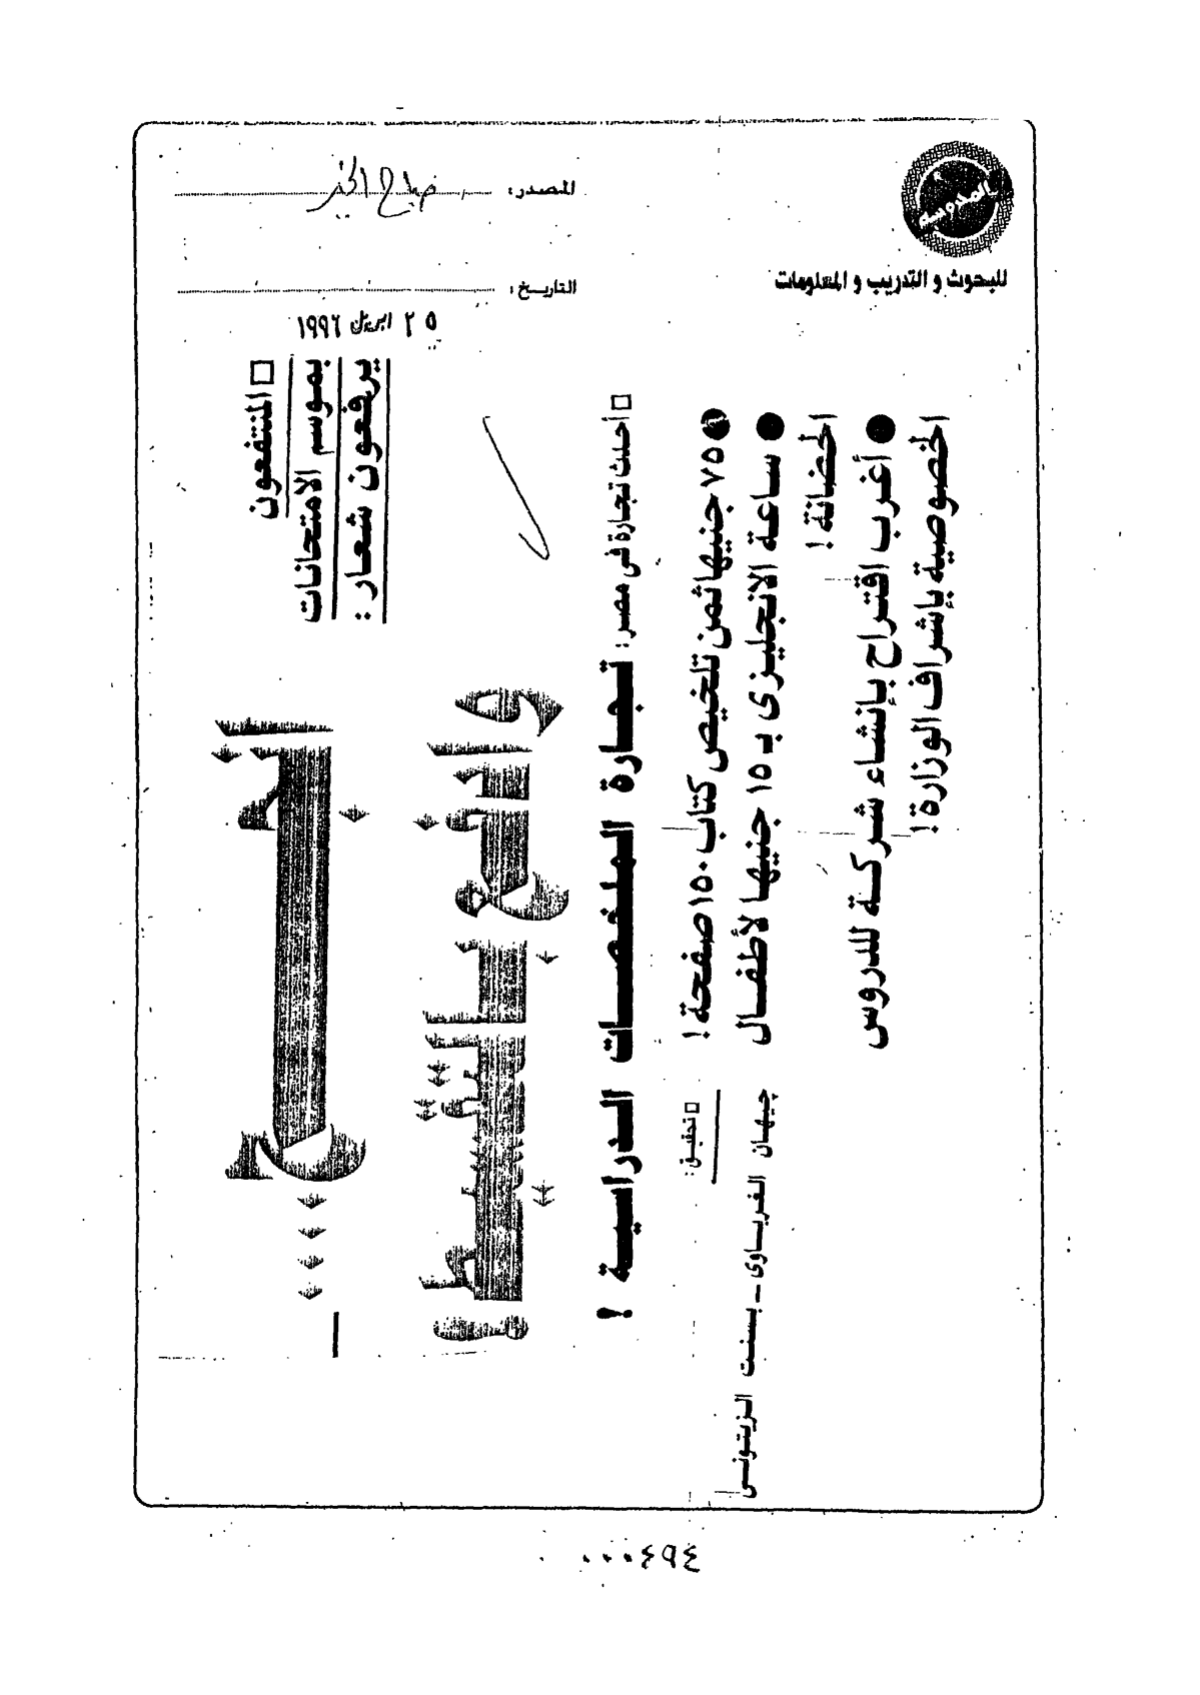 المدوسه
للبحوث و التدريب و المعلومات
المصدر: صباح الخير
التاريخ:
٢٥ ابريل ١٩٩٦
□ المنتفعون
بموسم الامتحانات
يرفعون شعار:
انجح ....
وادفع بالتقسيط
□ أحدث تجارة فى مصر: تجارة الملخصات الدراسية !
● ٧٥ جنيها ثمن تلخيص كتاب ١٥٠ صفحة !
● ساعة الانجليزى بـ ١٥ جنيها لأطفال
الحضانة !
● أغرب اقتراح بإنشاء شركة للدروس
الخصوصية بإشراف الوزارة !
□ تحقيق:
جيهان الغرباوى ـ بسنت الزيتونى
٠٠٠٤٩٤